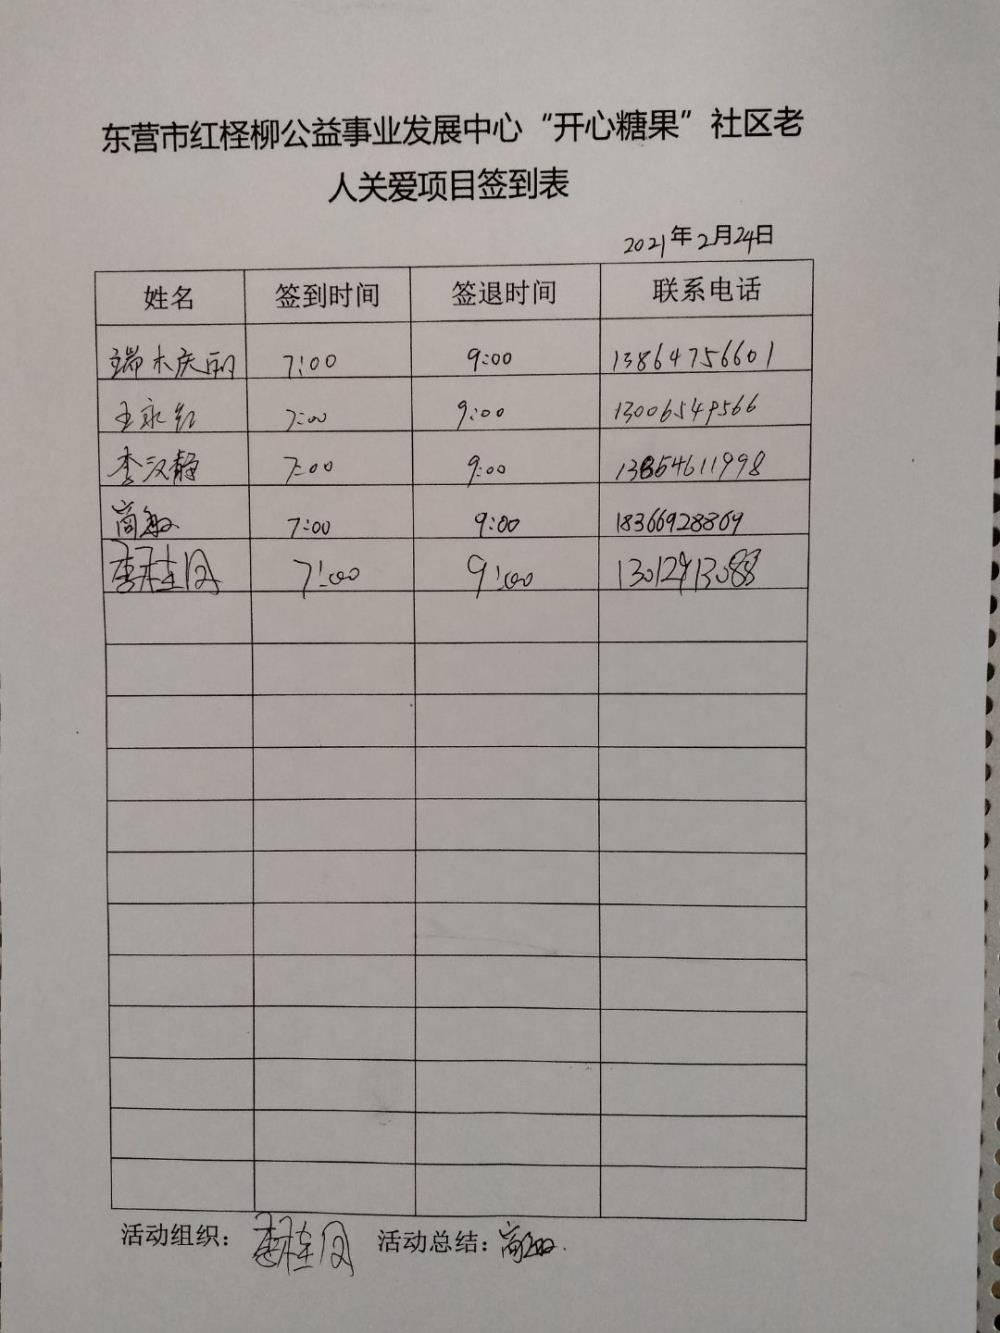 东营市红柽柳公益事业发展中心“开心糖果”社区老
人关爱项目签到表
2021年2月24日
姓名 签到时间 签退时间 联系电话
瑞木庆丽 7:00 9:00 13864756601
王永红 7:00 9:00 13006549566
李汉静 7:00 9:00 13854611998
商敏 7:00 9:00 18366928869
李桂凤 7:00 9:00
活动组织：李桂凤 活动总结：商敏.